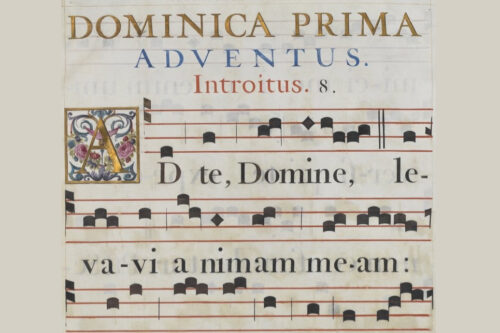 DOMINICA PRIMA
ADVENTUS.
Introitus. 8.
AD te, Domine, le-
va-vi animam me-am: